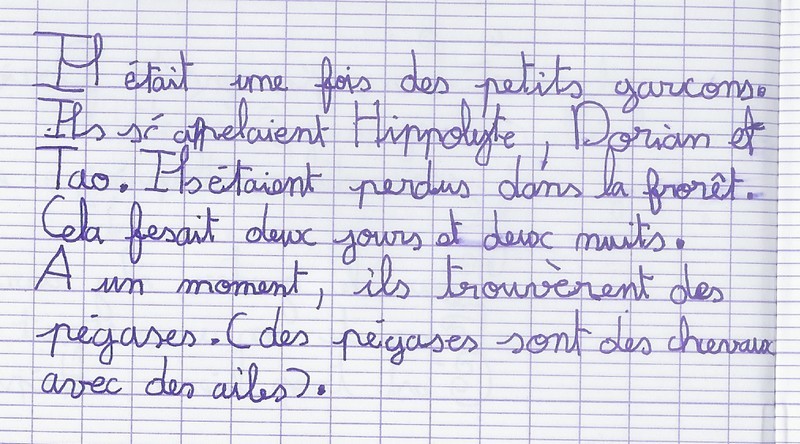 Il était une fois des petits garcons.
Ils s'é appelaient Hippolyte, Dorian et
Tao. Ils étaient perdus dans la frorêt.
Cela fesait deux jours et deux nuits.
A un moment, ils trouvèrent des
pégases. (des pégases sont des chevaux
avec des ailes).